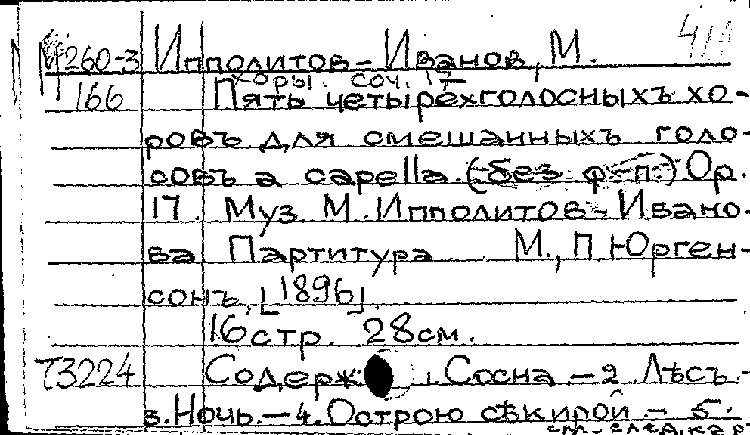 М260-3 Ипполитов-Иванов, М. 4/1
166 хоры. соч. 17
Пять четырехголосныхъ хо-
ровъ для смешанныхъ голо-
совъ a capella. (без ф-п.) Op.
17. Муз. М. Ипполитов-Ивано-
ва Партитура М., П. Юрген-
сонъ, [1896].
16 стр. 28 см.
Т3224 Содерж 1. Сосна - 2. Лѣсъ -
3. Ночь. - 4. Острою сѣкирой - 5.